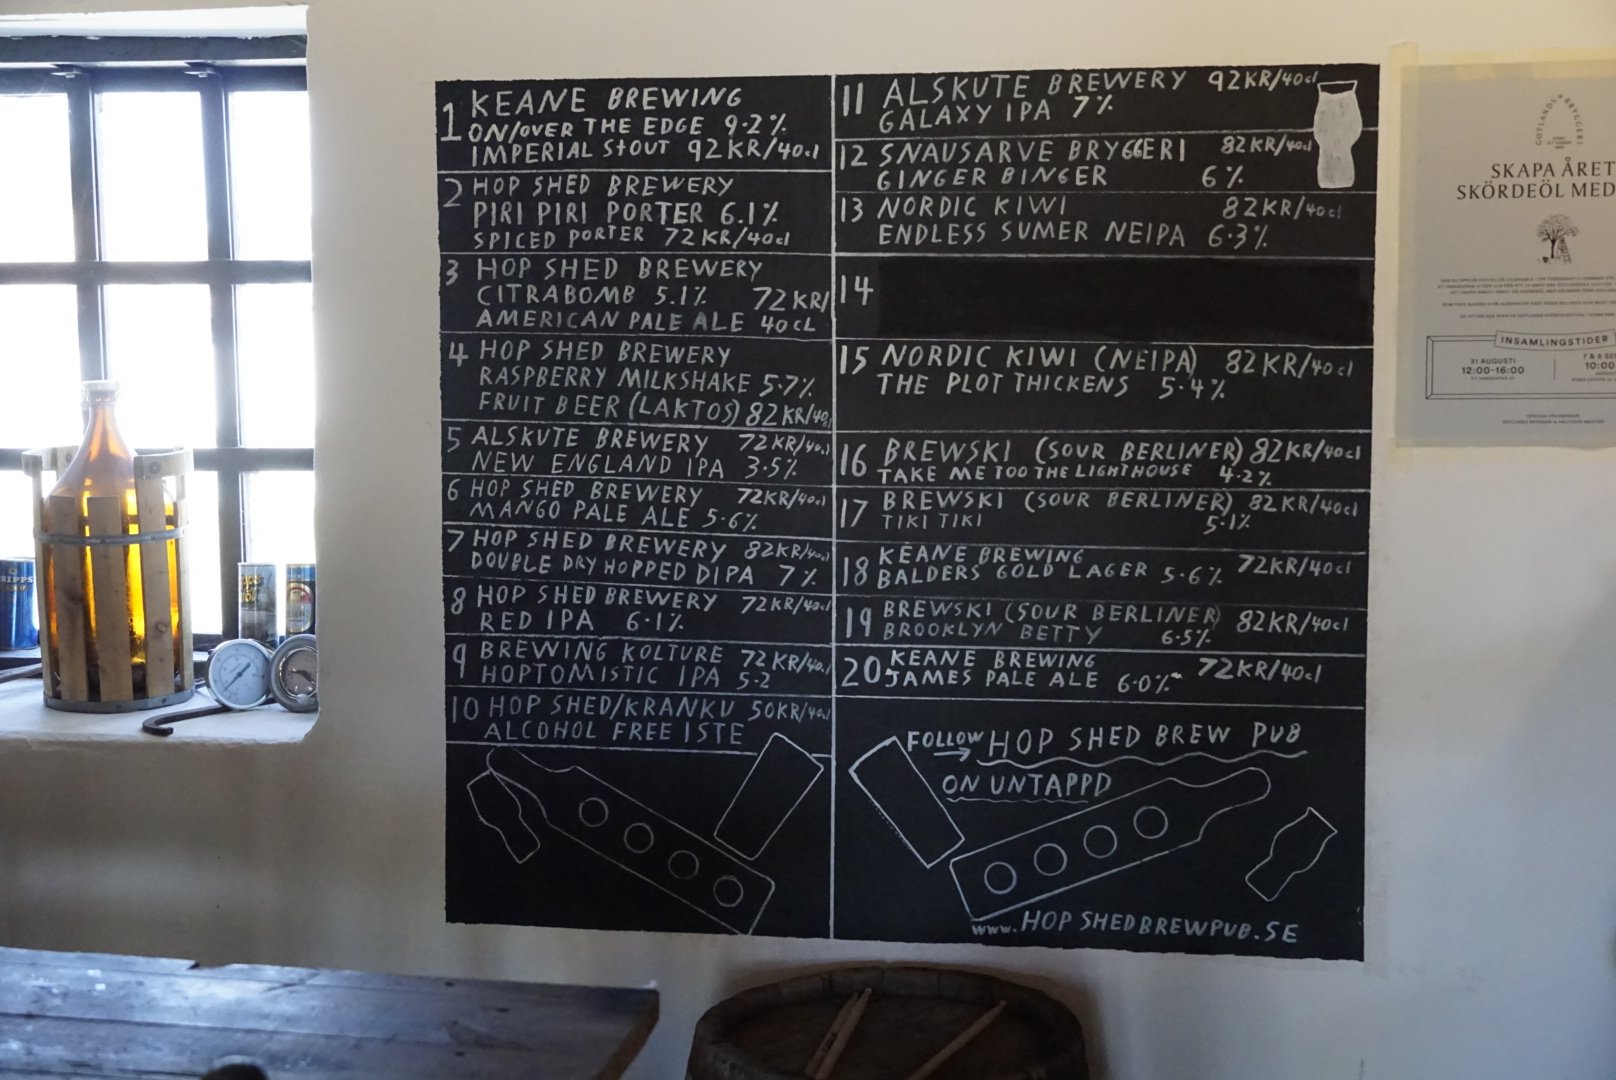 1 KEANE BREWING
ON/OVER THE EDGE 9.2%
IMPERIAL STOUT 92KR/40cl
2 HOP SHED BREWERY
PIRI PIRI PORTER 6.1%
SPICED PORTER 72KR/40cl
3 HOP SHED BREWERY
CITRABOMB 5.1% 72KR/
AMERICAN PALE ALE 40CL
4 HOP SHED BREWERY
RASPBERRY MILKSHAKE 5.7%
FRUIT BEER (LAKTOS) 82KR/40cl
5 ALSKUTE BREWERY 72KR/40cl
NEW ENGLAND IPA 3.5%
6 HOP SHED BREWERY 72KR/40cl
MANGO PALE ALE 5.6%
7 HOP SHED BREWERY 82KR/40cl
DOUBLE DRY HOPPED DIPA 7%
8 HOP SHED BREWERY 72KR/40cl
RED IPA 6.1%
9 BREWING KOLTURE 72KR/40cl
HOPTOMISTIC IPA 5.2
10 HOP SHED/KRANKU 50KR/40cl
ALCOHOL FREE ISTE
11 ALSKUTE BREWERY 92KR/40cl
GALAXY IPA 7%
12 SNAUSARVE BRYGGERI 82KR/40cl
GINGER BINGER 6%
13 NORDIC KIWI 82KR/40cl
ENDLESS SUMER NEIPA 6.3%
14
15 NORDIC KIWI (NEIPA) 82KR/40cl
THE PLOT THICKENS 5.4%
16 BREWSKI (SOUR BERLINER) 82KR/40cl
TAKE ME TOO THE LIGHTHOUSE 4.2%
17 BREWSKI (SOUR BERLINER) 82KR/40cl
TIKI TIKI 5.1%
18 KEANE BREWING 72KR/40cl
BALDERS GOLD LAGER 5.6%
19 BREWSKI (SOUR BERLINER) 82KR/40cl
BROOKLYN BETTY 6.5%
20 KEANE BREWING 72KR/40cl
JAMES PALE ALE 6.0%
FOLLOW → HOP SHED BREW PUB
ON UNTAPPD
www.HOPSHEDBREWPUB.SE
GOTLANDS BRYGGERI
SKAPA ÅRET
SKÖRDEÖL MED
INSAMLINGSTIDER
31 AUGUSTI
12:00-16:00
10:00